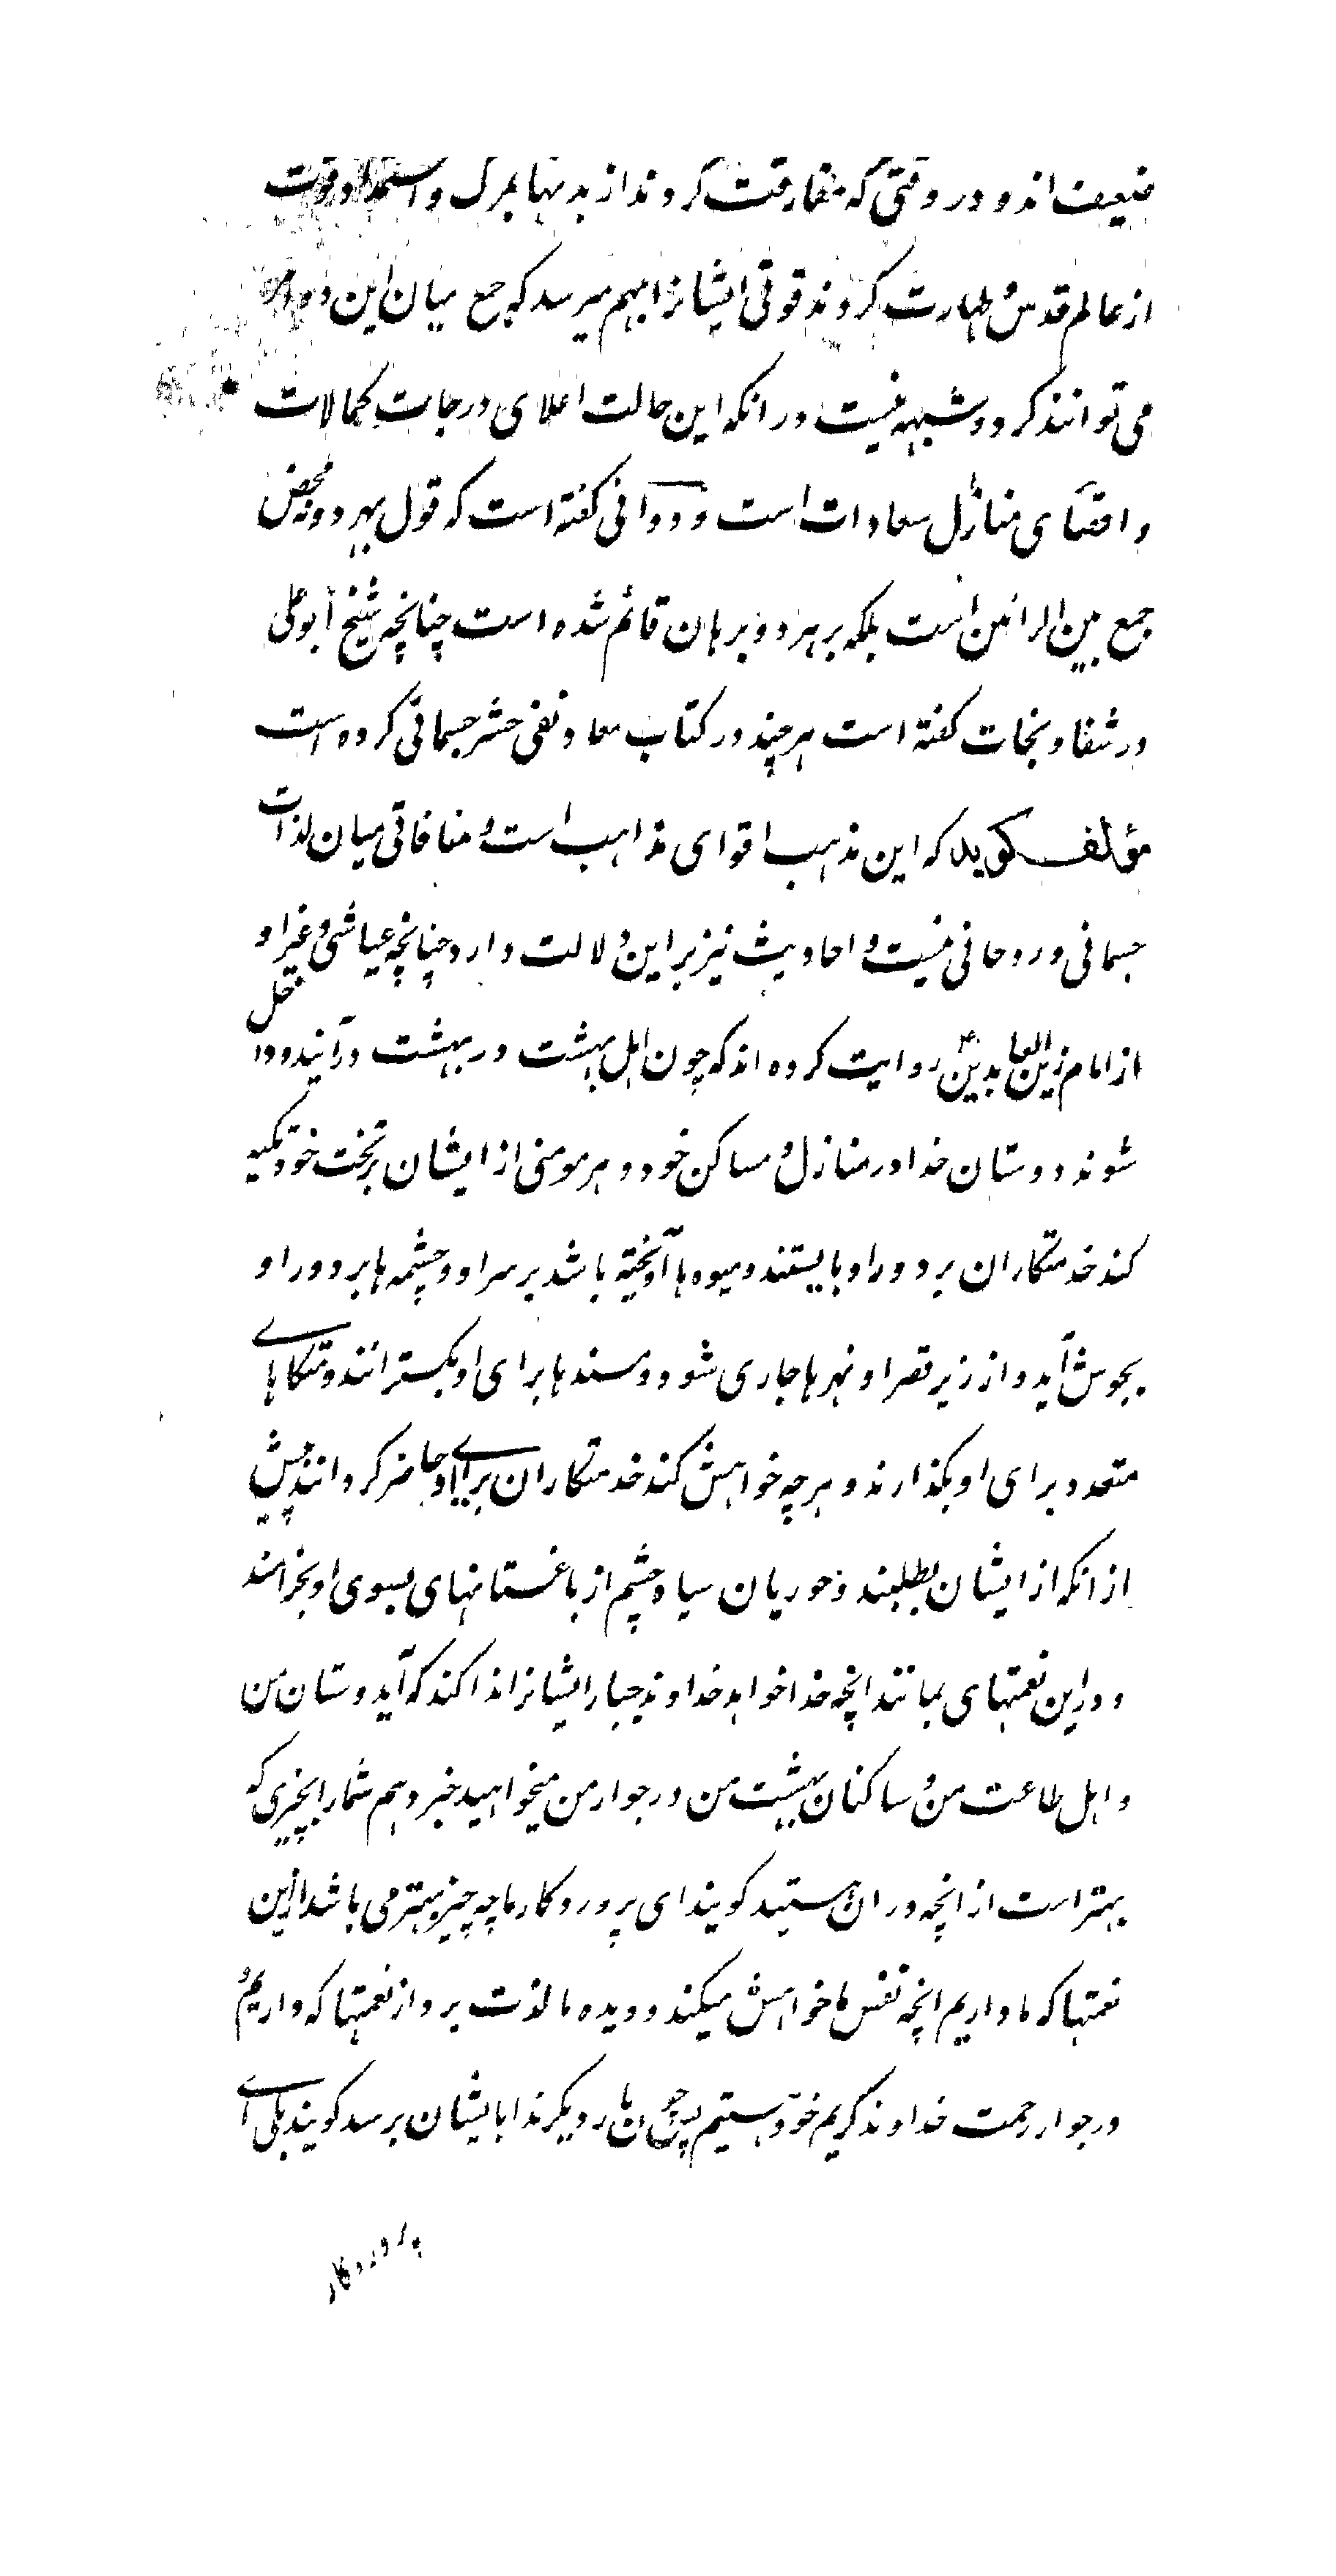 ضعیف‌اند و در وقتی که مفارقت کردند از بدنها بمرک و استمداد قوت
از عالم قدس و طهارت کردند قوتی ایشانرا بهم میرسد که جمع میان این دو امر
می توانند کرد و شبهه نیست در انکه این حالت اعلای درجات کمالات
و اقصای منازل سعادات است و دوانی کفته است که قول بهر دو نه محض
جمع بین الراثین است بلکه بر هر دو برهان قائم شده است چنانچه شیخ ابو علی
در شفا و نجات کفته است هر چند در کتاب معاد نفی حشر جسمانی کرده است
مؤلف کوید که این مذهب اقوای مذاهب است و منافاتی میان لذات
جسمانی و روحانی نیست و احادیث نیز بر این دلالت دارد چنانچه عیاشی و غیر او
از امام زین العابدین ع روایت کرده اند که چون اهل بهشت در بهشت درآیند و داخل
شوند دوستان خدا در منازل و مساکن خود و هر مومنی از ایشان بر تخت خود تکیه
کند خدمتکاران بر دور او بایستند و میوه ها آویخته باشد بر سر او و چشمه ها بر دور او
بجوش آید و از زیر قصر او نهرها جاری شود و مسندها برای او بکسترانند و متکاهای
متعدد برای او بکذارند و هر چه خواهش کند خدمتکاران برای او حاضر کردانند پیش
از انکه از ایشان بطلبند و حوریان سیاه چشم از باغستانهای بسوی او بخرامند
و در این نعمتهای بمانند انچه خدا خواهد خداوند جبار ایشانرا ندا کند که آید وستان من
و اهل طاعت من و ساکنان بهشت من در جوار من میخواهید خبر دهم شمارا بچیزی که
بهتر است از انچه در ان هستید کویند ای پروردکار ما چه چیز بهتر می باشد از این
نعمتها که ما داریم انچه نفس ما خواهش میکند و دیده ما لذت برد از نعمتها که داریم و
در جوار رحمت خداوند کریم خود هستیم پس چون بار دیکر ندا بایشان برسد کویند بلی ای
پروردکار